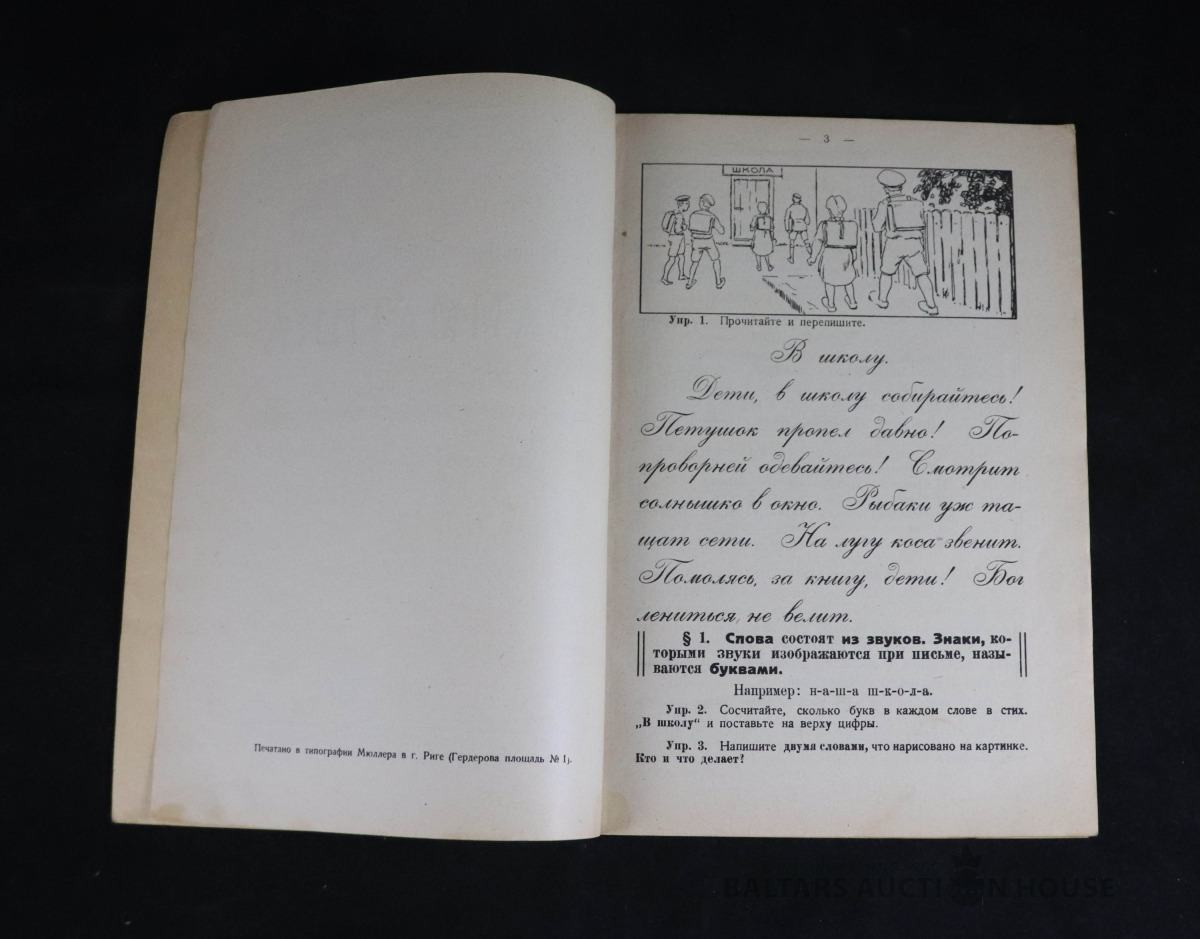 Печатано в типографии Мюллера в г. Риге (Гердерова площадь № 1).
— 3 —
ШКОЛА
Упр. 1. Прочитайте и перепишите.
В школу.
Дети, в школу собирайтесь!
Петушок пропел давно! По-
проворней одевайтесь! Смотрит
солнышко в окно. Рыбаки уж та-
щат сети. На лугу коса звенит.
Помолясь, за книгу, дети! Бог
лениться, не велит.
§ 1. Слова состоят из звуков. Знаки, ко-
торыми звуки изображаются при письме, назы-
ваются буквами.
Например: н-а-ш-а ш-к-о-л-а.
Упр. 2. Сосчитайте, сколько букв в каждом слове в стих.
„В школу“ и поставьте на верху цифры.
Упр. 3. Напишите двумя словами, что нарисовано на картинке.
Кто и что делает?
BALTARS AUCTION HOUSE